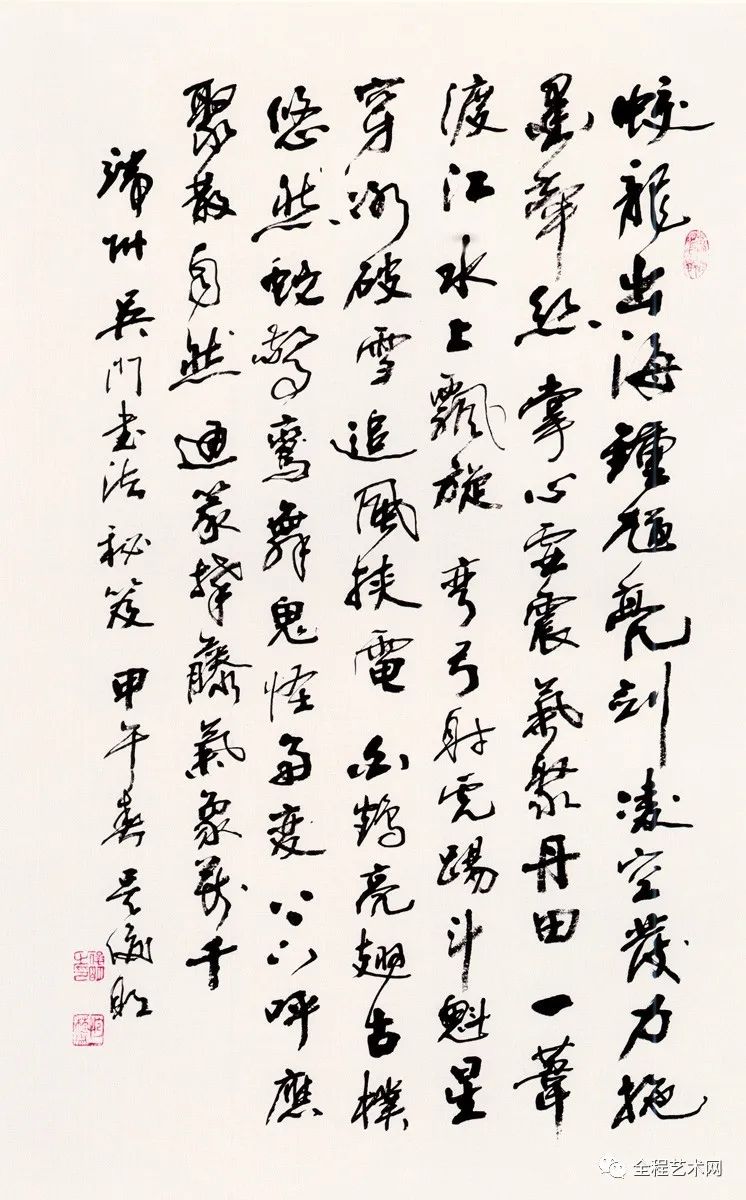 蛟龍出海鍾馗亮劍凌空發力拖
墨牽絲掌心雷震氣聚丹田一葦
渡江水上飄旋彎弓射虎踢斗魁星
穿冰破雪追風挾電白鶴亮翅古樸
悠然蛇驚鸞舞鬼怪多變八八呼應
聚散自然通篆揮藤氣象萬千
端州吳門書法秘笈甲午春吳
全程艺术网